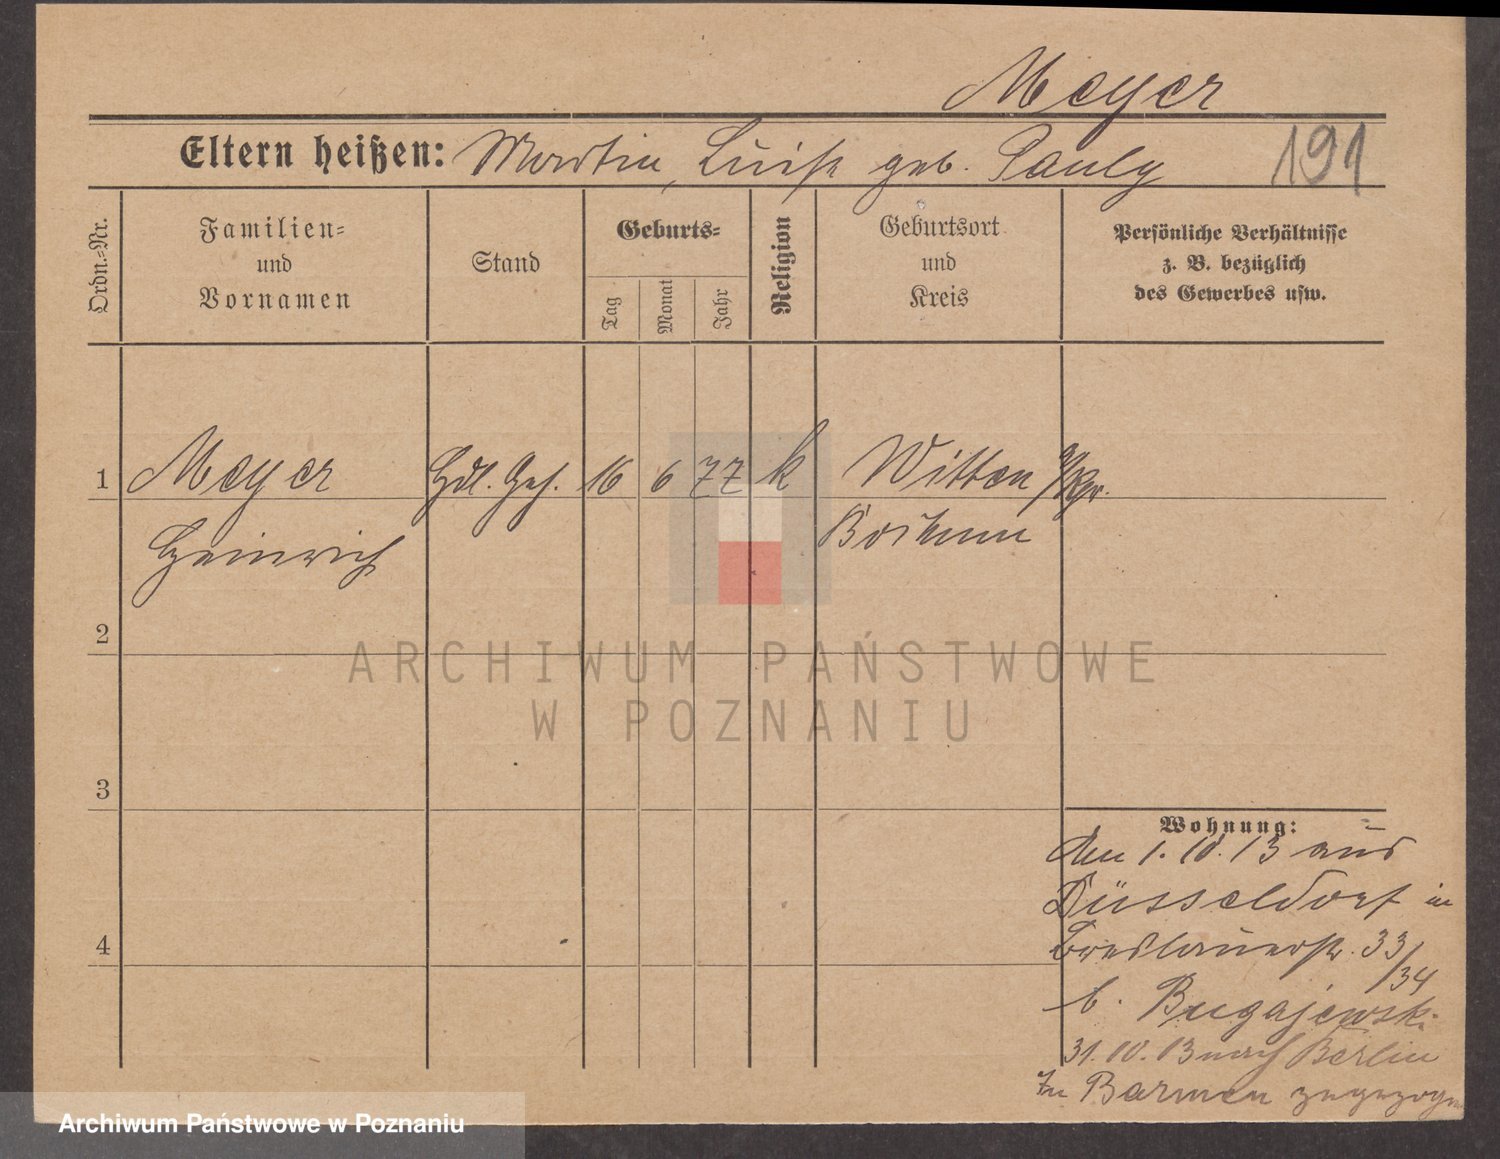 Meyer
Eltern heißen: Martin, Luise geb. Pauly 191
Ordn.-Nr.
Familien-
und
Vornamen
Stand
Geburts-
Tag
Monat
Jahr
Religion
Geburtsort
und
Kreis
Persönliche Verhältnisse
z. B. bezüglich
des Gewerbes usw.
1 Meyer Hdl. Geh. 16 6 77 k Witten
Heinrich Bochum
2
ARCHIWUM PAŃSTWOWE
W POZNANIU
3
Wohnung:
den 1.10.13 aus
Düsseldorf in
Breslauerstr. 33/34
b. Bugajewski
31.10.13 nach Berlin
In Barmen zugezogen
4
Archiwum Państwowe w Poznaniu